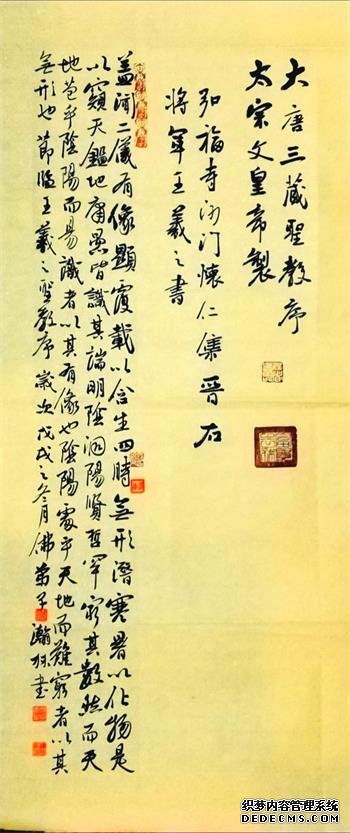 大唐三藏聖教序
太宗文皇帝製
弘福寺沙門懷仁集晉右
將軍王羲之書
蓋聞二儀有像顯覆載以含生四時無形潛寒暑以化物是
以窺天鑑地庸愚皆識其端明陰洞陽賢哲罕窮其數然而天
地苞乎陰陽而易識者以其有像也陰陽處乎天地而難窮者以其
無形也節臨王羲之聖教序歲次戊戌之冬月佛弟子瀚書
织梦内容管理系统
DEDECMS.COM